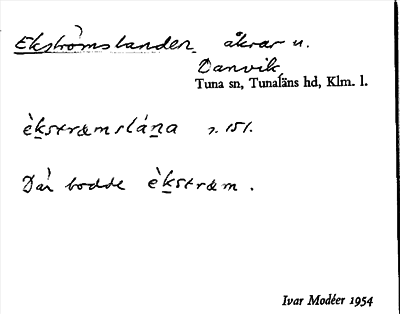 Ekströmslanden åkrar u.
Danvik,
Tuna sn, Tunaläns hd, Klm. l.
èkstræmslána 2. 151.
Där bodde èkstræm.
Ivar Modéer 1954